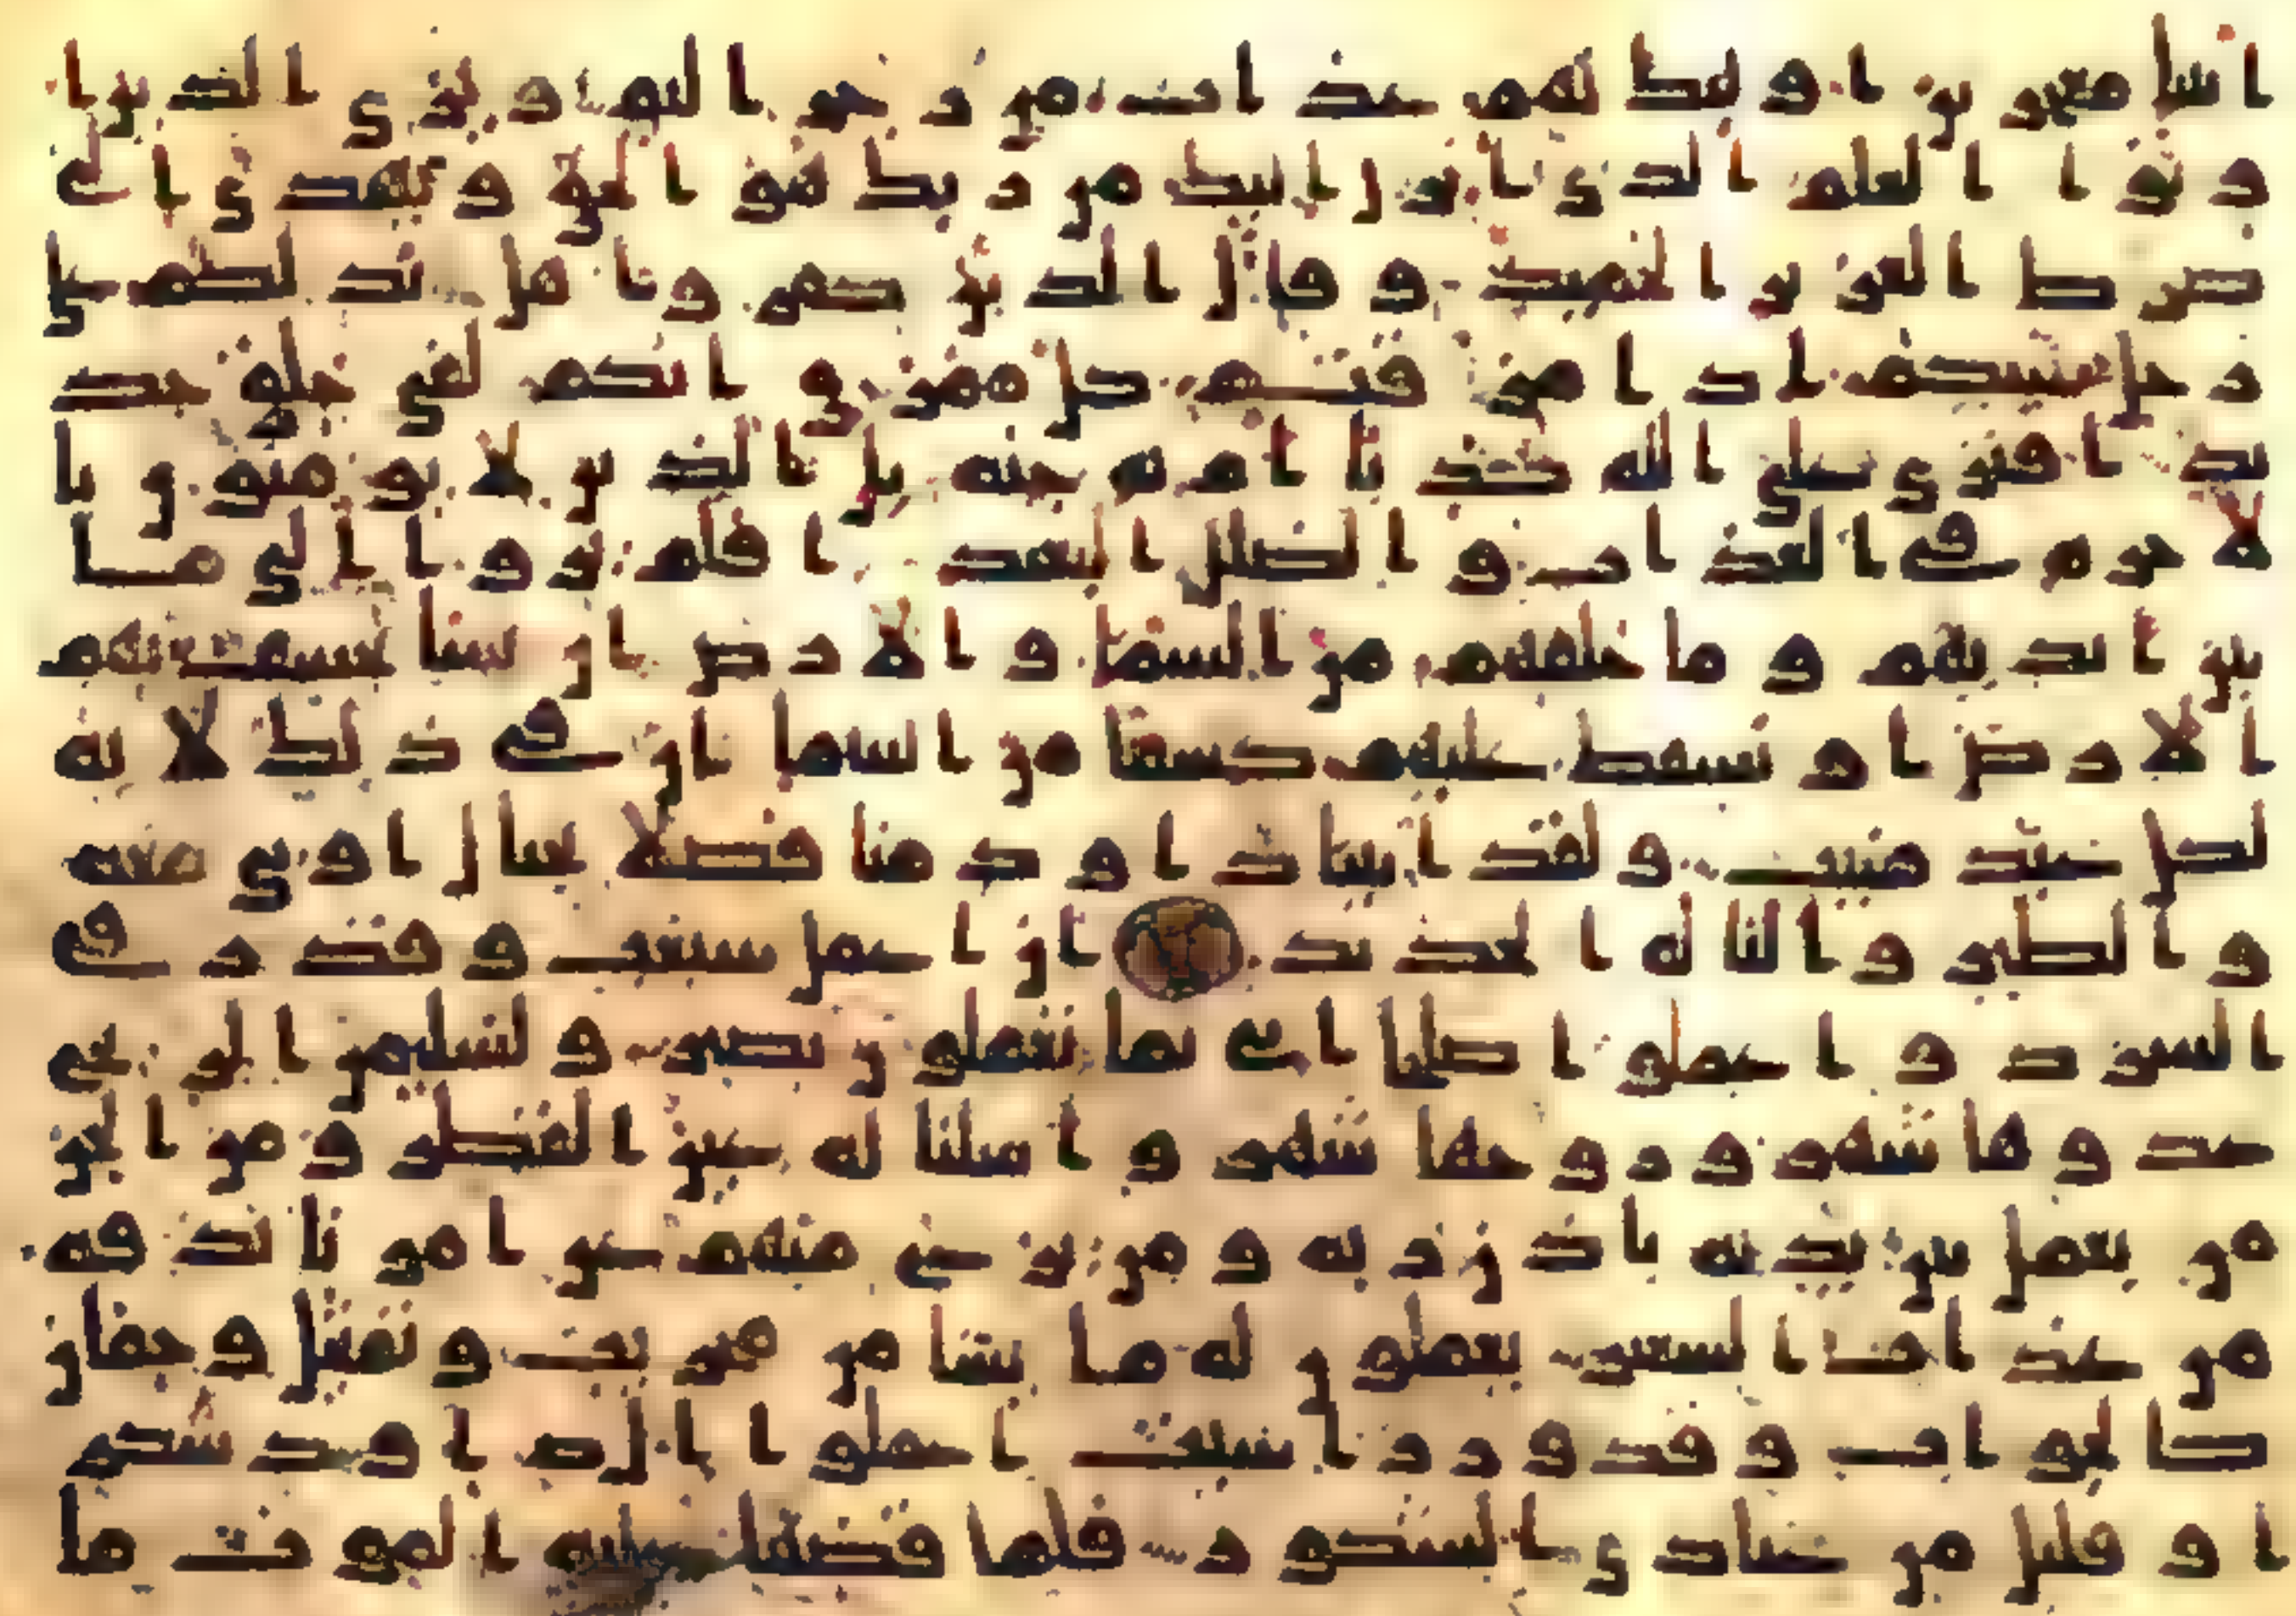 ايتنا معجزين اوليك لهم عذاب من رجز اليم ويرى الذين ا
وتوا العلم الذي انزل اليك من ربك هو الحق ويهدي الى
صرط العزيز الحميد وقال الذين كفروا هل ندلكم على
رجل ينبيكم اذا مزقتم كل ممزق انكم لفي خلق جد
يد افترى على الله كذبا ام به جنه بل الذين لا يومنون با
لاخره في العذاب والضلل البعيد افلم يروا الى ما
بين ايديهم وما خلفهم من السما والارض ان نشا نخسف بهم
الارض او نسقط عليهم كسفا من السما ان في ذلك لايه
لكل عبد منيب ولقد اتينا داود منا فضلا يجبال اوبي معه
والطير والنا له الحديد ان اعمل سبغت وقدر في
السرد واعملوا صلحا اني بما تعملون بصير ولسليمن الريح
غدوها شهر وروحها شهر واسلنا له عين القطر ومن الجن
من يعمل بين يديه باذن ربه ومن يزغ منهم عن امرنا نذقه
من عذاب السعير يعملون له ما يشا من محريب وتمثيل وجفان
كالجواب وقدور راسيت اعملوا ال داود شكر
ا وقليل من عبادي الشكور فلما قضينا عليه الموت ما